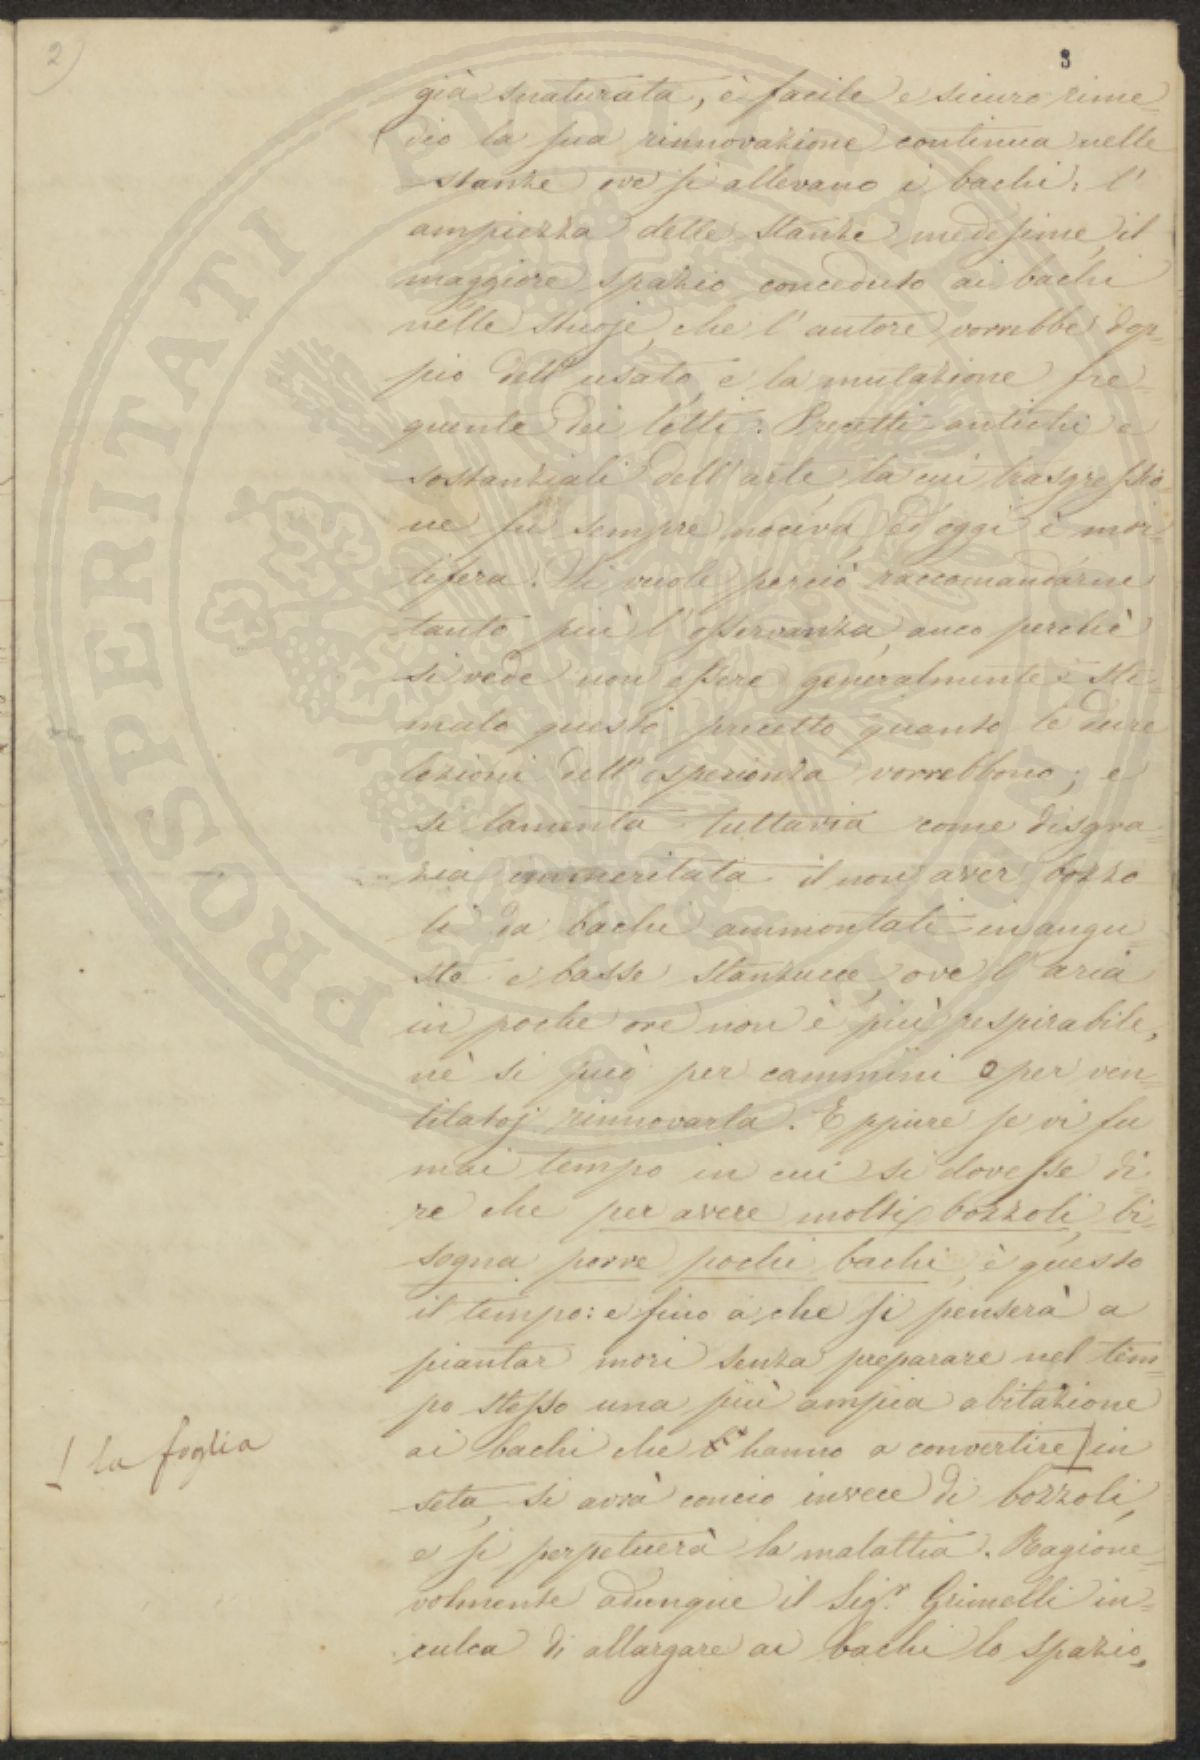 2)
3
già snaturata, è facile e sicuro rime=
dio la sua rinnovazione continua nelle
stanze ove si allevano i bachi: l'
ampiezza delle stanze medesime, il
maggiore spazio conceduto ai bachi
nelle stuoje, che l'autore vorrebbe dop=
pio dell'usato, e la mutazione fre=
quente dei letti. Precetti antichi e
sostanziali dell'arte, la cui trasgressio=
ne fu sempre nociva, ed oggi è mor=
tifera. Si vuole perciò raccomandarne
tanto più l'osservanza, anco perchè
si vede non essere generalmente sti=
mato questo precetto quanto le dure
lezioni dell'esperienza vorrebbono; e
si lamenta tuttavia come disgra=
zia immeritata il non aver bozzo
li da bachi ammontati in angu=
ste e basse stanzucce, ove l'aria
in poche ore non è più respirabile,
nè si può per cammini o per ven=
tilatoj rinnovarla. Eppure se vi fu
mai tempo in cui si dovesse di
re che per avere molti bozzoli, bi=
sogna porre pochi bachi, è questo
il tempo: e fino a che si penserà a
piantar mori senza preparare nel tem=
po stesso una più ampia abitazione
ai bachi che hanno a convertire / in
/ la foglia
seta, si avrà concio invece di bozzoli,
e si perpetuerà la malattia. Ragione=
volmente adunque il Sig.r Grimelli in=
culca di allargare ai bachi lo spazio,
PROSPERITATI PUBLICAE AUGENDAE